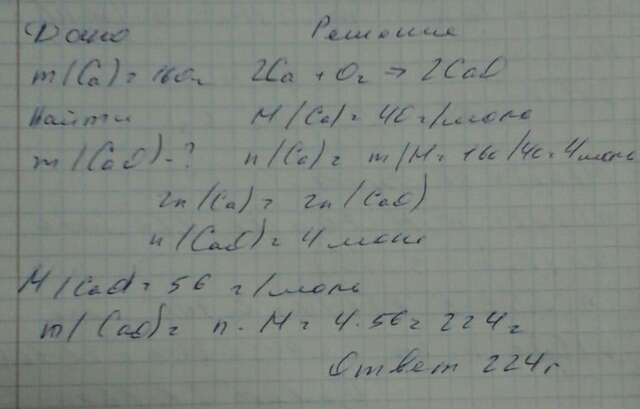 Дано Решение
m(Ca)=160г 2Ca + O2 → 2CaO
Найти M(Ca)=40г/моль
m(CaO)-? n(Ca)= m/M=160/40=4моль
2n(Ca)= 2n(CaO)
n(CaO)=4моль
M(CaO)=56 г/моль
m(CaO)= n·M=4·56=224г
Ответ 224г